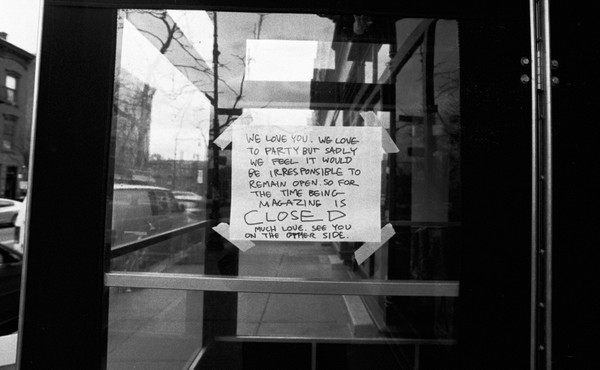 WE LOVE YOU. WE LOVE
TO PARTY BUT SADLY
WE FEEL IT WOULD
BE IRRESPONSIBLE TO
REMAIN OPEN. SO FOR
THE TIME BEING
MAGAZINE IS
CLOSED
MUCH LOVE. SEE YOU
ON THE OTHER SIDE.